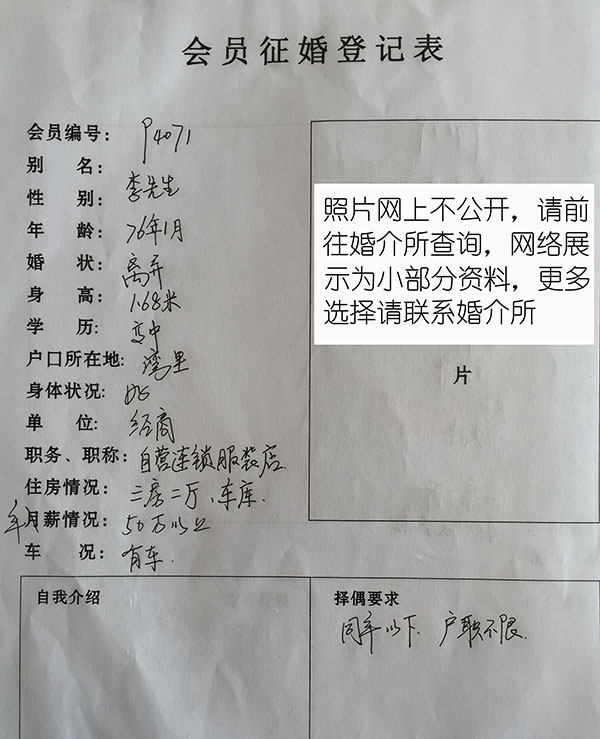 会员征婚登记表
会员编号： P4071
别 名：
李先生
性 别：
年 龄： 76年1月
婚 状： 离异
身 高： 1.68米
学 历： 高中
户口所在地： 湾里
身体状况: 好
单 位: 经商
职务、职称： 自营连锁服装店.
住房情况： 三房二厅、车库.
年
月薪情况： 50万以上
车 况： 有车.
照片网上不公开，请前
往婚介所查询，网络展
示为小部分资料，更多
选择请联系婚介所
片
自我介绍
择偶要求
同年以下. 户职不限.